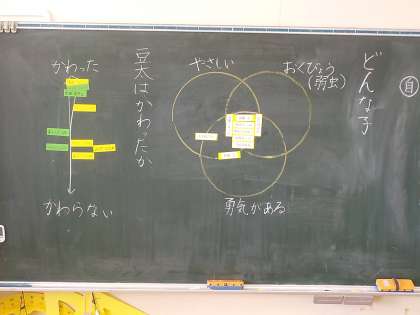 自
どんな子
おくびょう
(弱虫)
やさしい
勇気がある
豆太はかわったか
かわった
かわらない